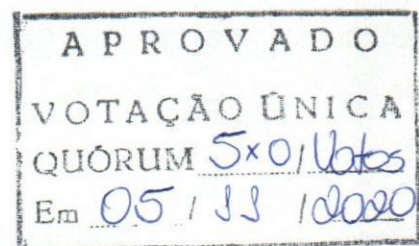 APROVADO
VOTAÇÃO ÚNICA
QUÓRUM 5x0/Votos
Em 05 / 11 / 2020